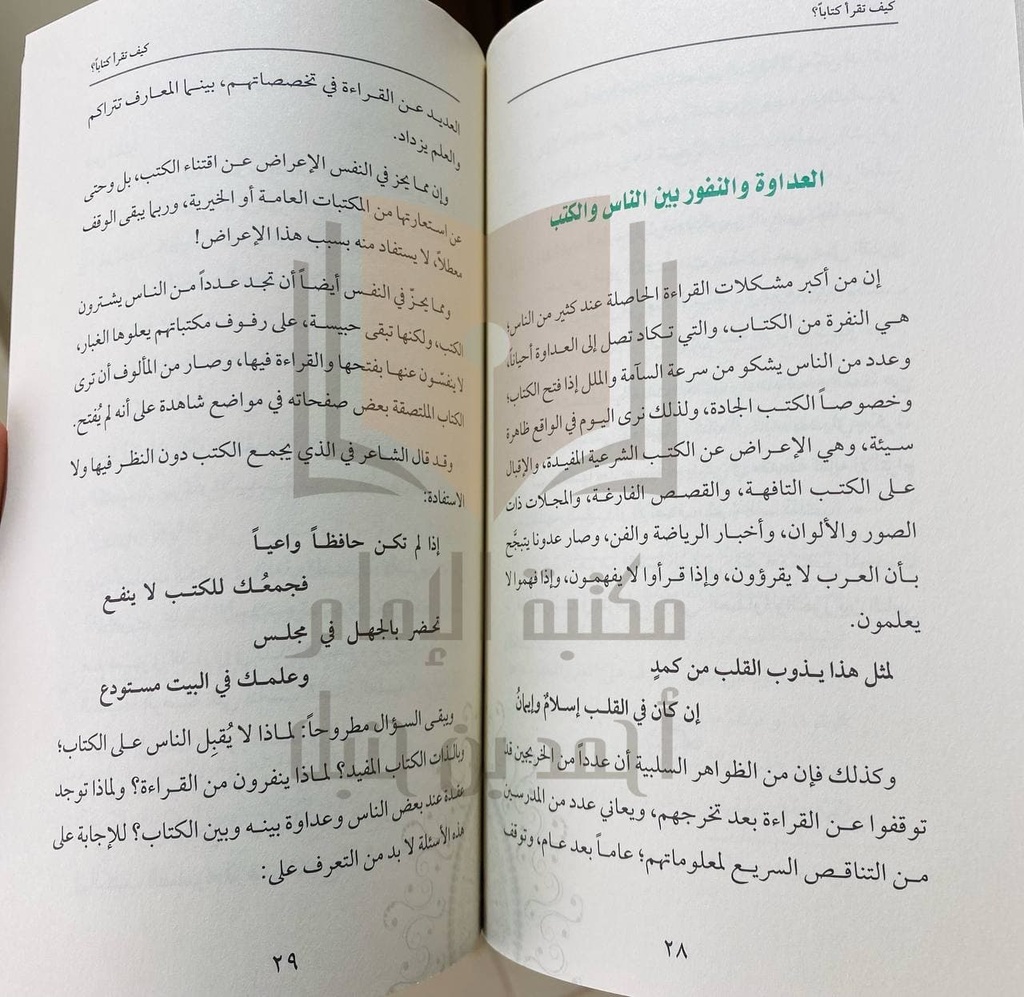 كيف تقرأ كتاباً؟
العداوة والنفور بين الناس والكتب
إن من أكبر مشكلات القراءة الحاصلة عند كثير من الناس؛
هي النفرة من الكتاب، والتي تكاد تصل إلى العداوة أحياناً،
وعدد من الناس يشكو من سرعة السآمة والملل إذا فتح الكتاب؛
وخصوصاً الكتب الجادة، ولذلك نرى اليوم في الواقع ظاهرة
سيئة، وهي الإعراض عن الكتب الشرعية المفيدة، والإقبال
على الكتب التافهة، والقصص الفارغة، والمجلات ذات
الصور والألوان، وأخبار الرياضة والفن، وصار عدونا يتبجَّح
بأن العرب لا يقرؤون، وإذا قرأوا لا يفهمون، وإذا فهموا لا
يعلمون.
لمثل هذا يذوب القلب من كمدٍ
إن كان في القلب إسلامٌ وإيمانُ
وكذلك فإن من الظواهر السلبية أن عدداً من الخريجين قد
توقفوا عن القراءة بعد تخرجهم، ويعاني عدد من المدرسين
من التناقص السريع لمعلوماتهم؛ عاماً بعد عام، وتوقف
٢٨
كيف تقرأ كتاباً؟
العديد عن القراءة في تخصصاتهم، بينما المعارف تتراكم
والعلم يزداد.
وإن مما يحز في النفس الإعراض عن اقتناء الكتب، بل وحتى
عن استعارتها من المكتبات العامة أو الخيرية، وربما يبقى الوقف
معطلاً، لا يستفاد منه بسبب هذا الإعراض!
ومما يحزّ في النفس أيضاً أن تجد عدداً من الناس يشترون
الكتب، ولكنها تبقى حبيسة، على رفوف مكتباتهم يعلوها الغبار،
لا ينفسّون عنها بفتحها والقراءة فيها، وصار من المألوف أن ترى
الكتاب الملتصقة بعض صفحاته في مواضع شاهدة على أنه لم يُفتح.
وقد قال الشاعر في الذي يجمع الكتب دون النظر فيها ولا
الاستفادة:
إذا لم تكن حافظاً واعياً
فجمعُك للكتب لا ينفع
تحضر بالجهل في مجلس
وعلمك في البيت مستودع
ويبقى السؤال مطروحاً: لماذا لا يُقبِل الناس على الكتاب؛
وبالذات الكتاب المفيد؟ لماذا ينفرون من القراءة؟ ولماذا توجد
عقدة عند بعض الناس وعداوة بينه وبين الكتاب؟ للإجابة على
هذه الأسئلة لا بد من التعرف على:
٢٩
مكتبة الإمام
أحمد بن حنبل